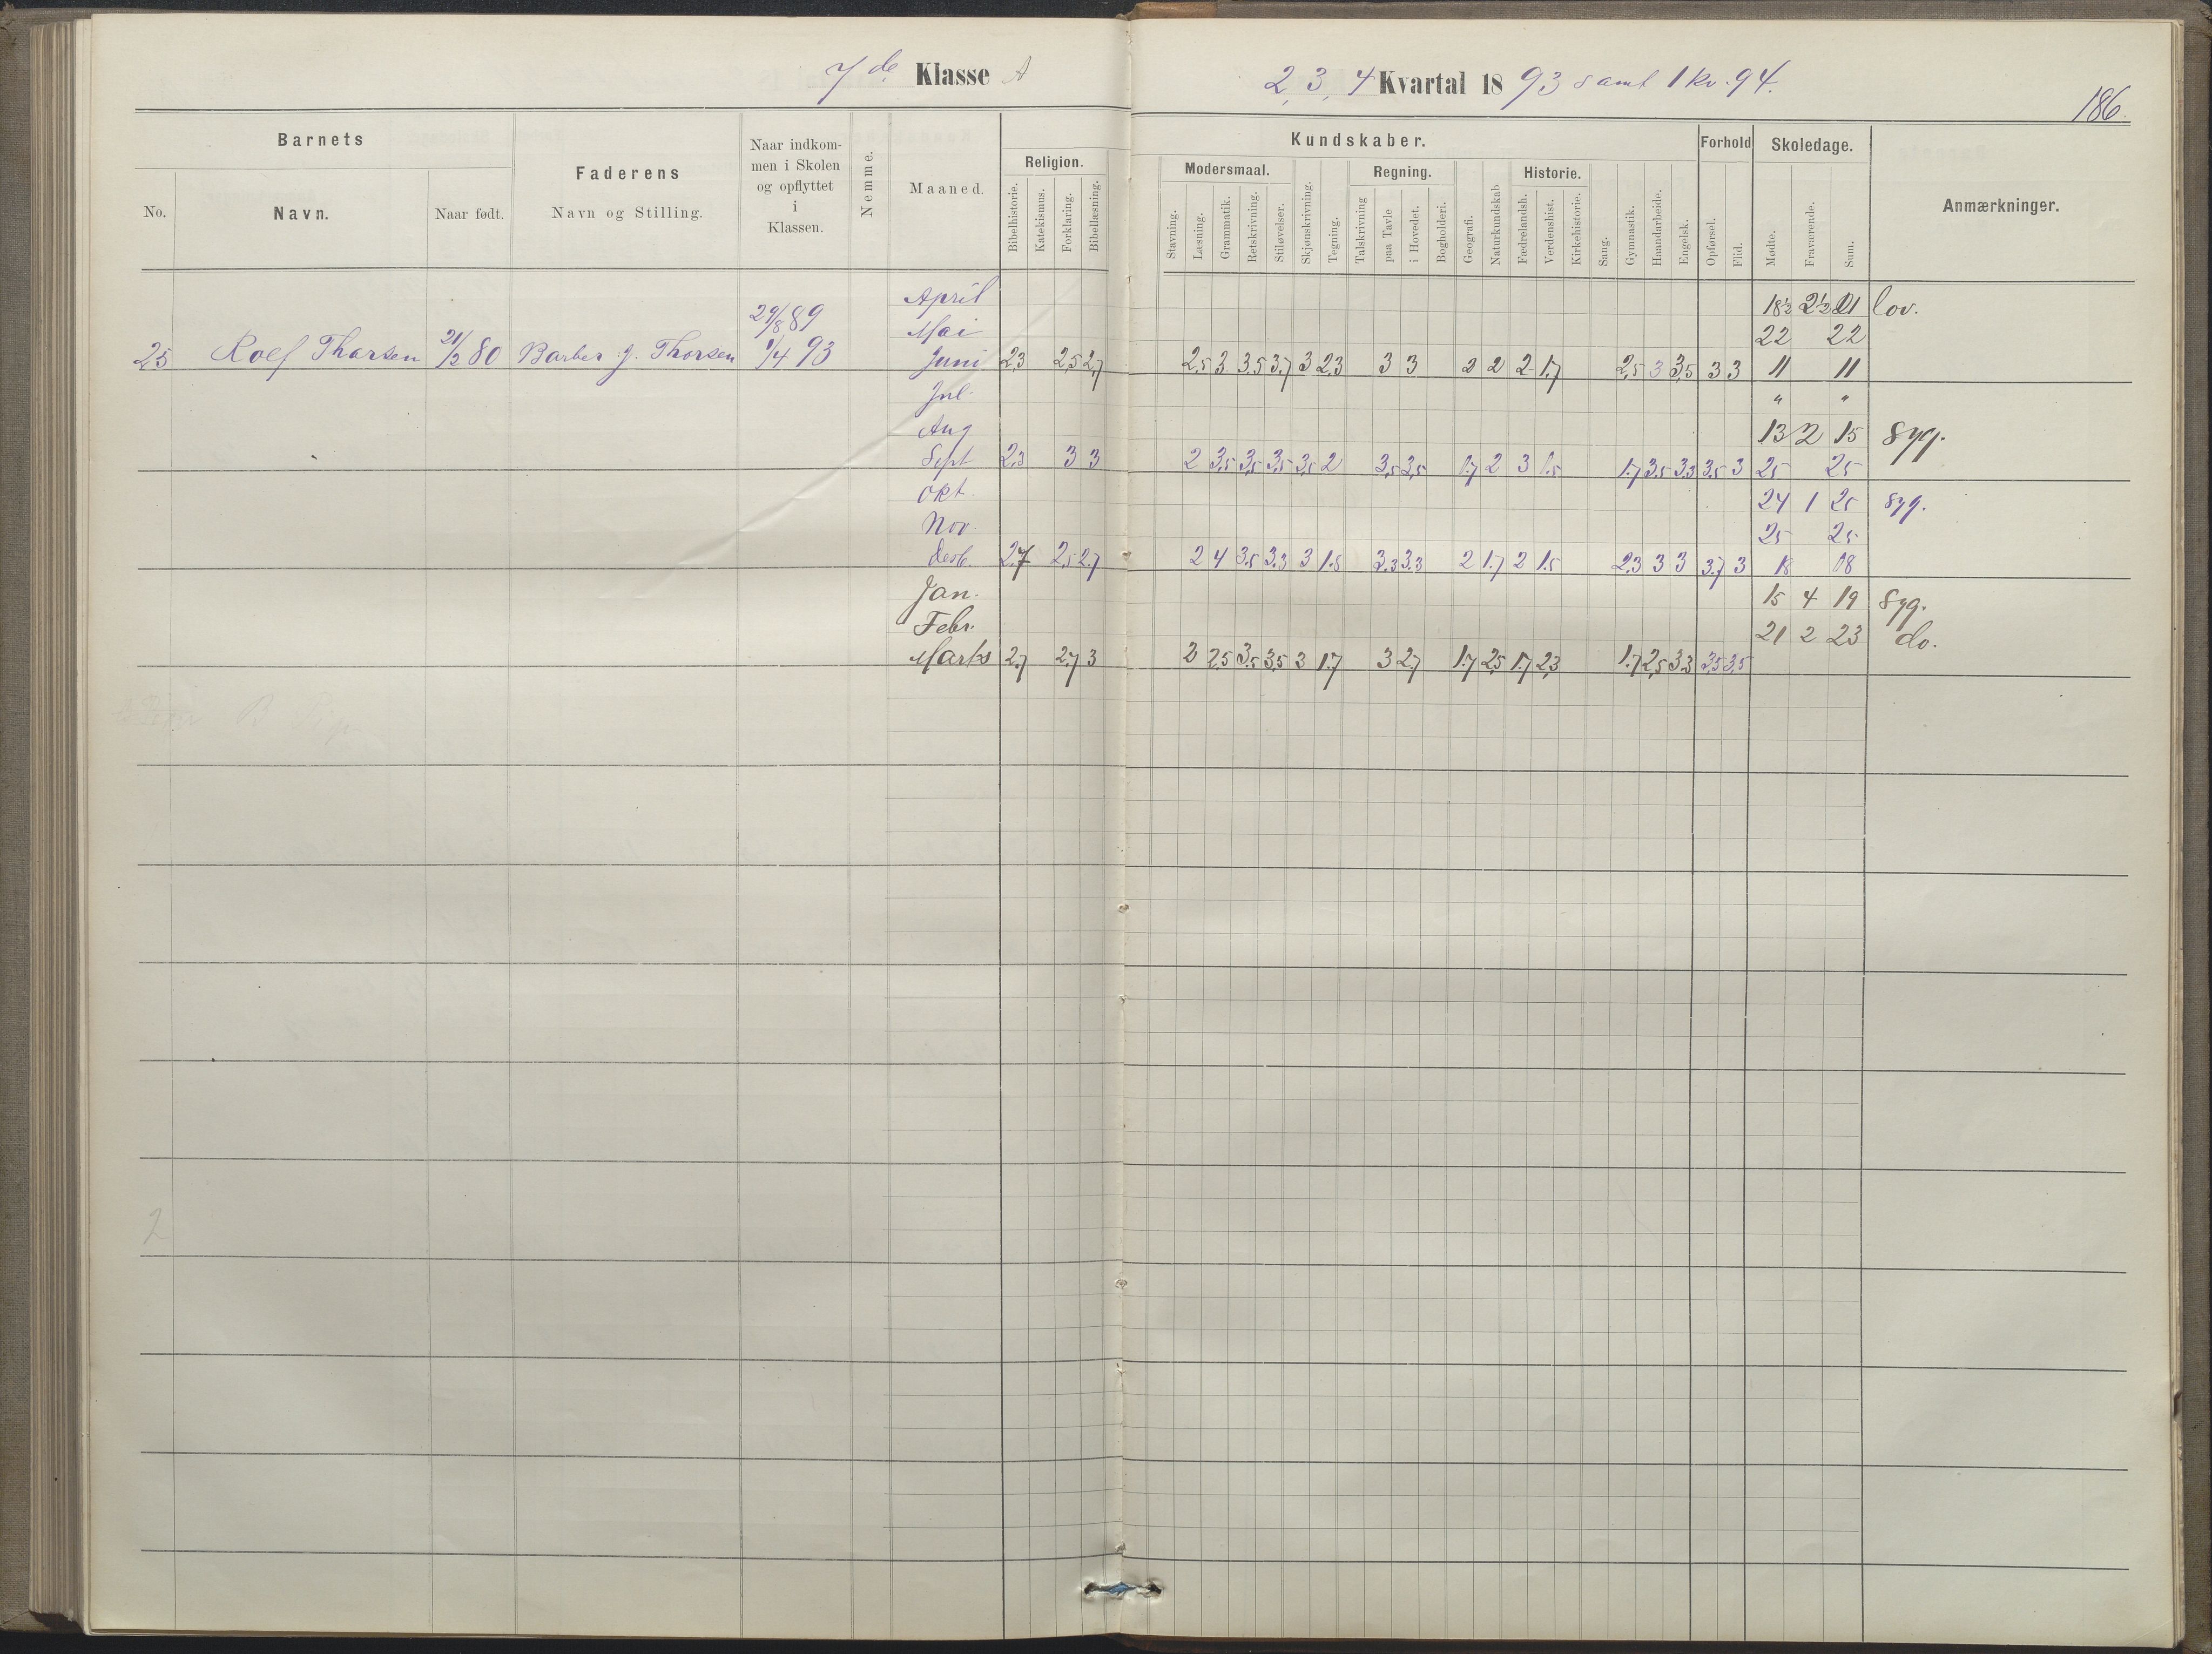 7de Klasse A
2, 3, 4 Kvartal 18 93 samt 1 kv. 94.
186.
Barnets
No.
Navn.
Naar født.
Faderens
Navn og Stilling.
Naar indkom-
men i Skolen
og opflyttet
i
Klassen.
Nemme.
Maaned.
Religion.
Bibelhistorie.
Katekismus.
Forklaring.
Bibellæsning.
Kundskaber.
Modersmaal.
Stavning.
Læsning.
Grammatik.
Retskrivning.
Stiløvelser.
Skjønskrivning.
Tegning.
Regning.
Talskrivning
paa Tavle
i Hovedet.
Bogholderi.
Geografi.
Naturkundskab
Historie.
Fædrelandsh.
Verdenshist.
Kirkehistorie.
Sang.
Gymnastik.
Haandarbeide.
Engelsk.
Forhold
Opførsel.
Flid.
Skoledage.
Mødte.
Fraværende.
Sum.
Anmærkninger.
April 18½ 2½ 21 lov.
29/8 89
Mai 22 22
25 Rolf Thorsen 21/2 80 Barber J. Thorsen 1/4 93 Juni 2,3 2,5 2,7 2,5 3 3,5 3,7 3 2,3 3 3 2 2 2 1,7 2,5 3 3,5 3 3 11 11
Jul. " "
Aug 13 2 15 syg.
Sept 2,3 3 3 2 3,5 3,5 3,5 3,5 2 3,5 3,5 1,7 2 3 1,5 1,7 3,5 3,3 3,5 3 25 25
Okt. 24 1 25 syg.
Nov. 25 25
Desb. 2,7 2,5 2,7 2 4 3,5 3,3 3 1,5 3,3 3,3 2 1,7 2 1,5 2,3 3 3 3,7 3 18 18
Jan. 15 4 19 Syg.
Febr. 21 2 23 do.
Marts 2,7 2,7 3 2 2,5 3,5 3,5 3 1,7 3 2,7 1,7 2,5 1,7 2,3 1,7 2,5 3,3 3,5 3,5
2